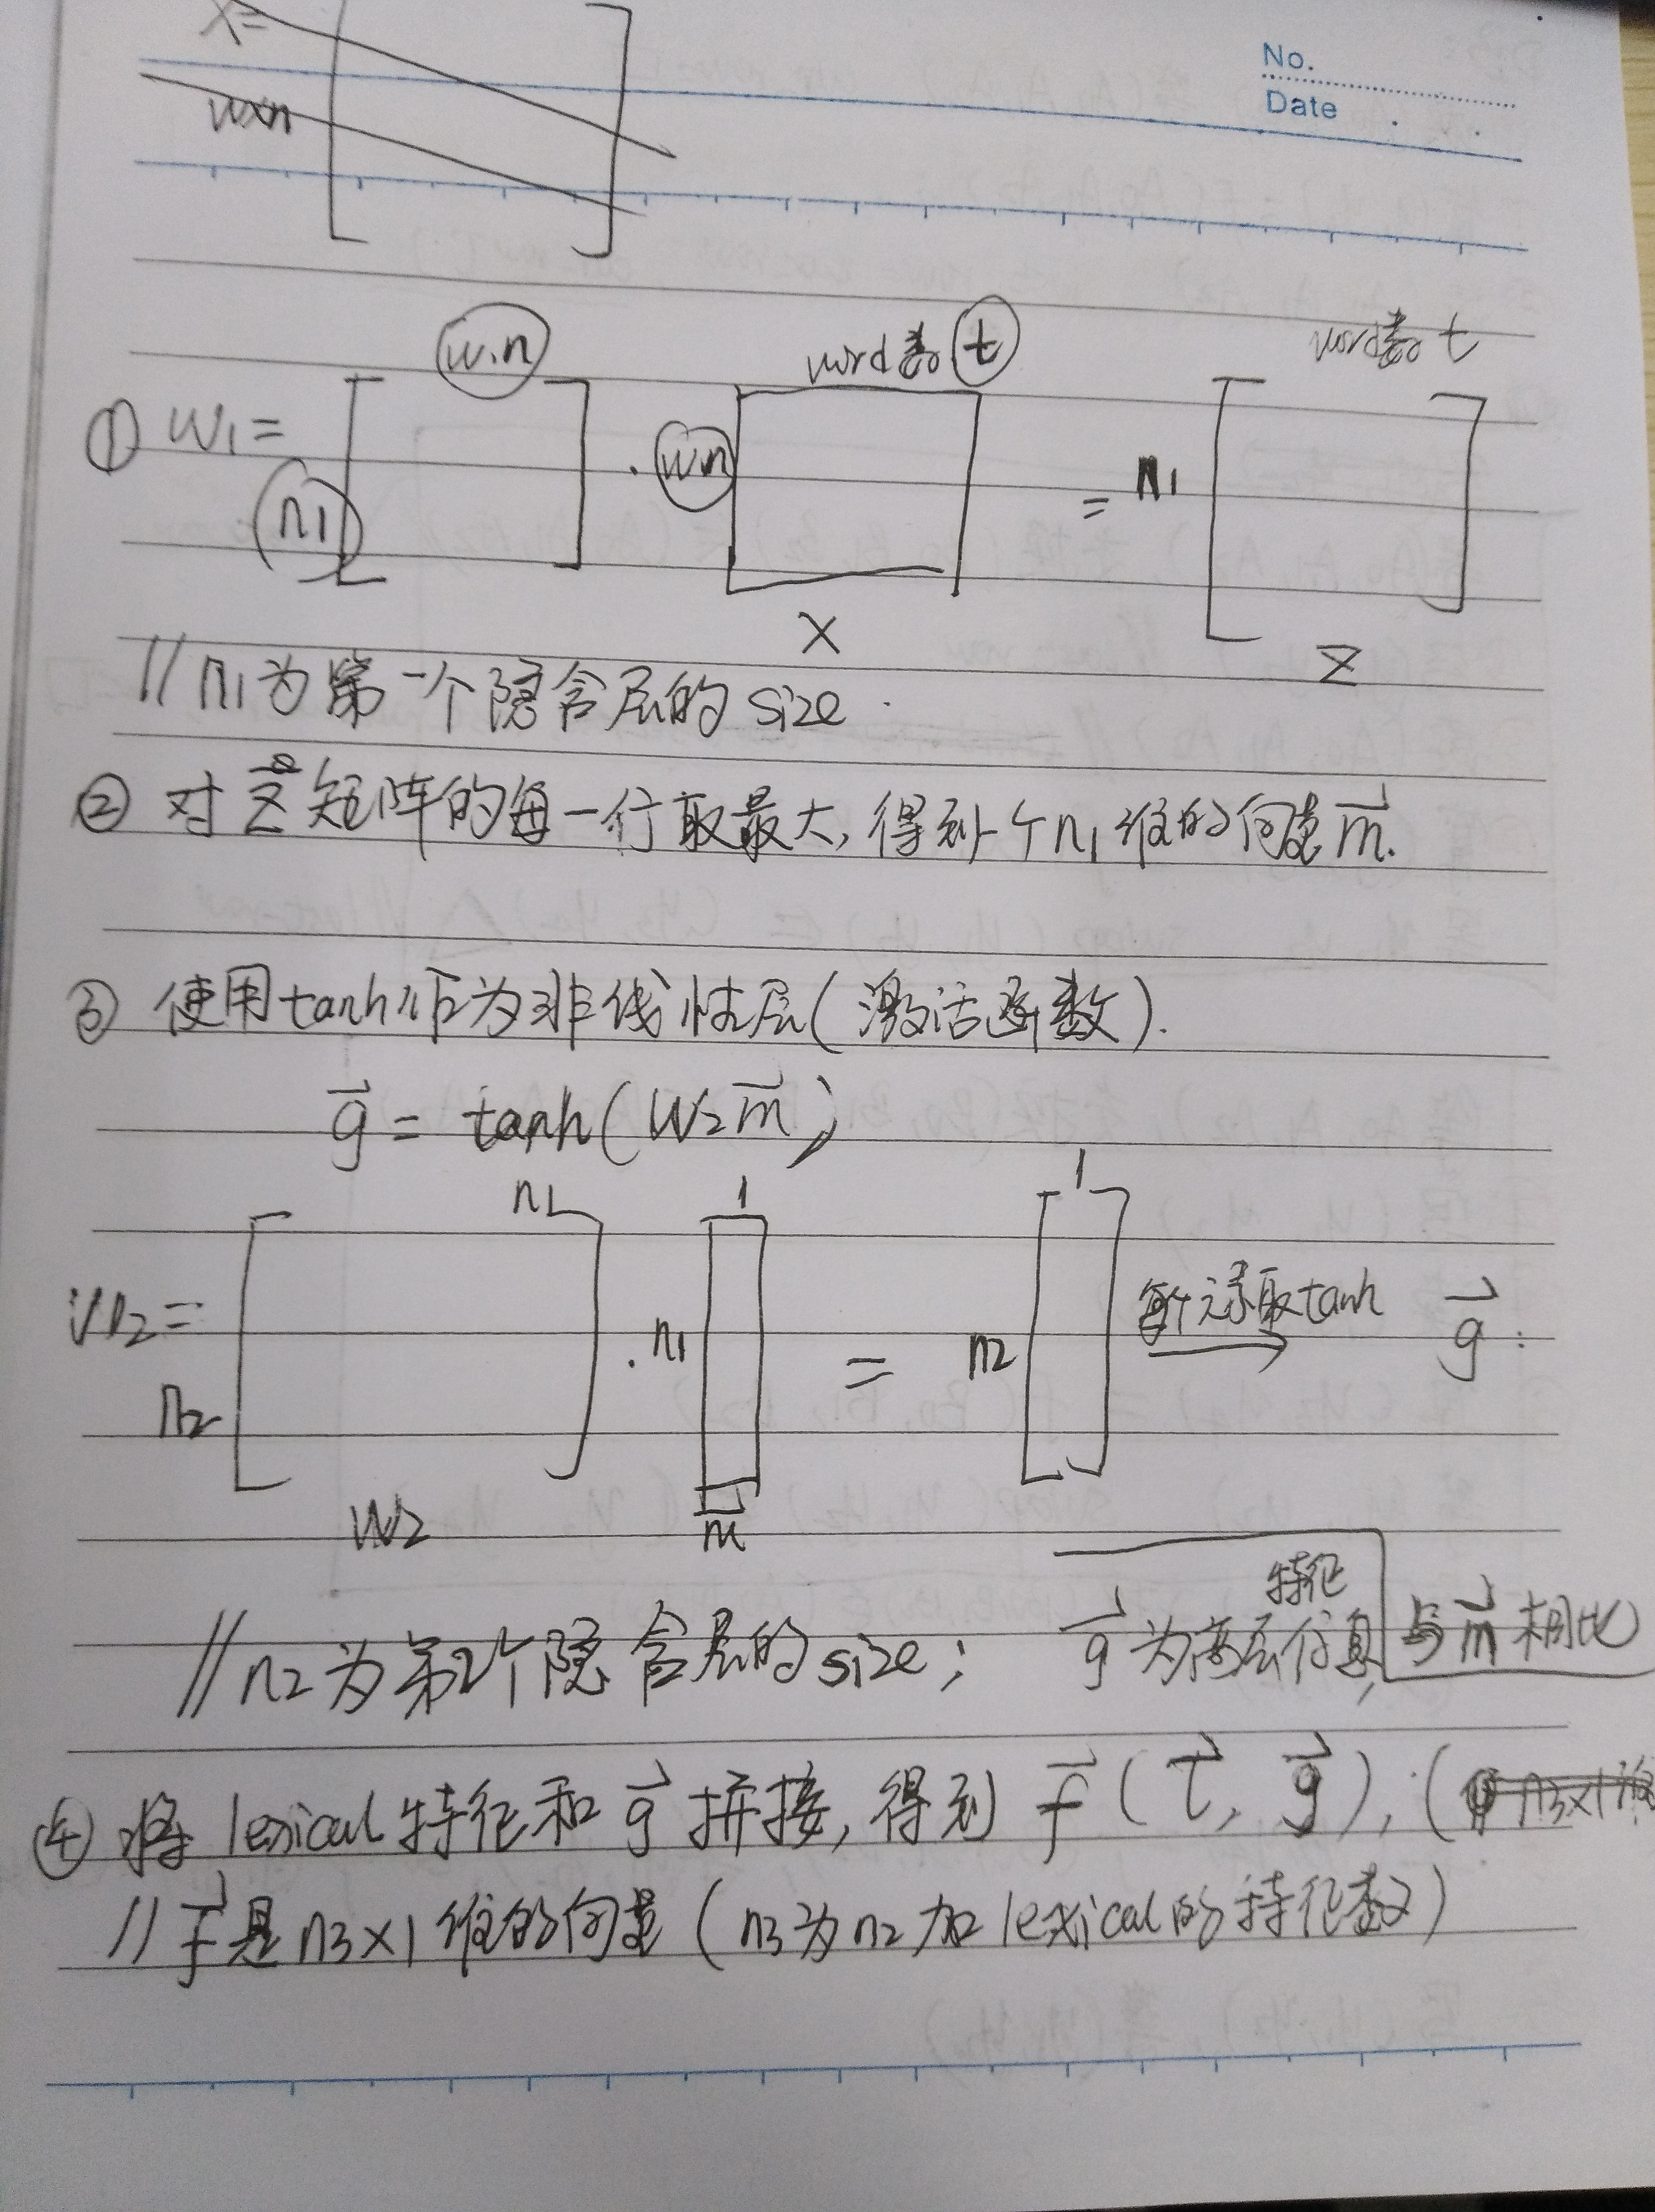 X=
w×n
No.
Date
w·n word数 t word数 t
① W1= n1 · w·n = n1
X Z
//n1为第一个隐含层的size.
② 对Z矩阵的每一行取最大,得到一个n1维的向量m.
③ 使用tanh作为非线性层(激活函数).
g = tanh(W2m)
n1 1 1
W2= · n1 = n2 每个元素取tanh g
n2
W2 m
特征
//n2为第2个隐含层的size; g为高层信息, 与m相比
④ 将lexical特征和g拼接,得到f(l, g), ( n3×1维
//f是n3×1维的向量(n3为n2加lexical的特征数)